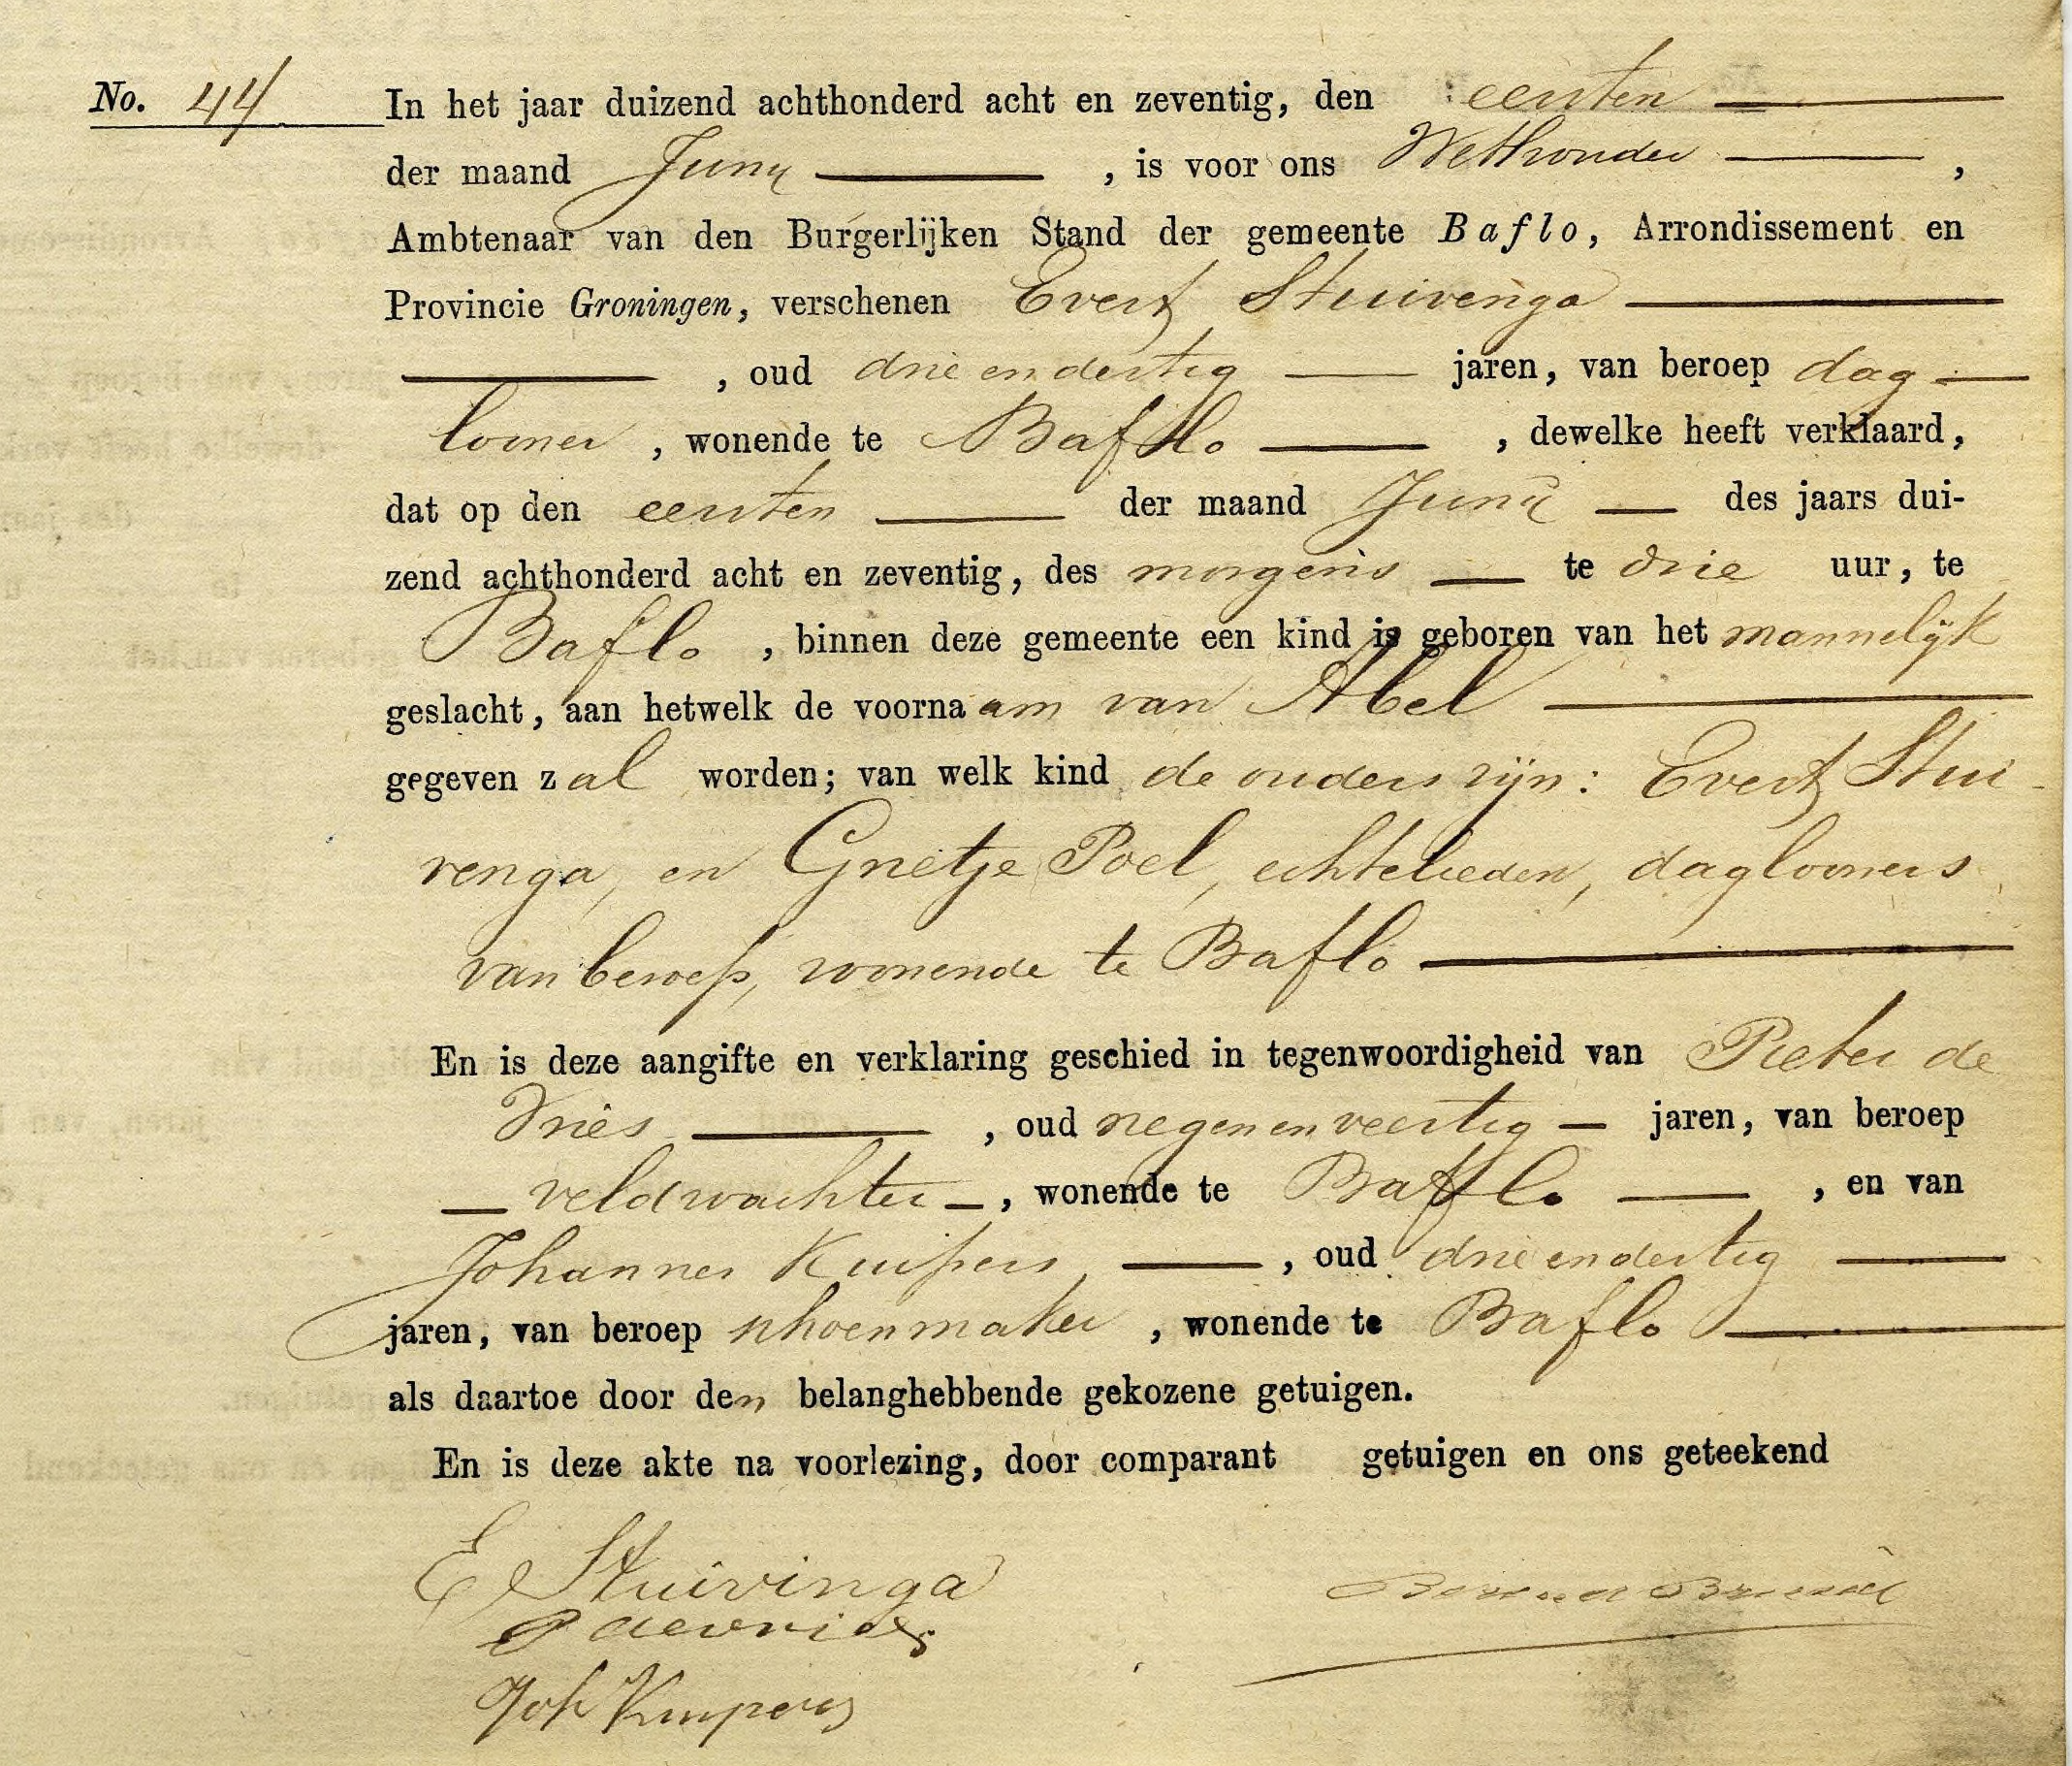 No. 44 In het jaar duizend achthonderd acht en zeventig, den eersten
der maand Juny, is voor ons Wethouder,
Ambtenaar van den Burgerlijken Stand der gemeente Baflo, Arrondissement en
Provincie Groningen, verschenen Evert Stuivenga
, oud drie en dertig jaren, van beroep dag-
looner, wonende te Baflo, dewelke heeft verklaard,
dat op den eersten der maand Junij des jaars dui-
zend achthonderd acht en zeventig, des morgens te drie uur, te
Baflo, binnen deze gemeente een kind is geboren van het mannelijk
geslacht, aan hetwelk de voornaam van Abel
gegeven zal worden; van welk kind de ouders zijn: Evert Stui-
venga, en Grietje Poel, echtelieden, daglooners
van beroep, wonende te Baflo
En is deze aangifte en verklaring geschied in tegenwoordigheid van Pieter de
Vries, oud negen en veertig jaren, van beroep
veldwachter, wonende te Baflo, en van
Johannes Kuipers, oud drie en dertig
jaren, van beroep schoenmaker, wonende te Baflo
als daartoe door den belanghebbende gekozene getuigen.
En is deze akte na voorlezing, door comparant getuigen en ons geteekend
E Stuivinga
P de vries
Joh Kuipers